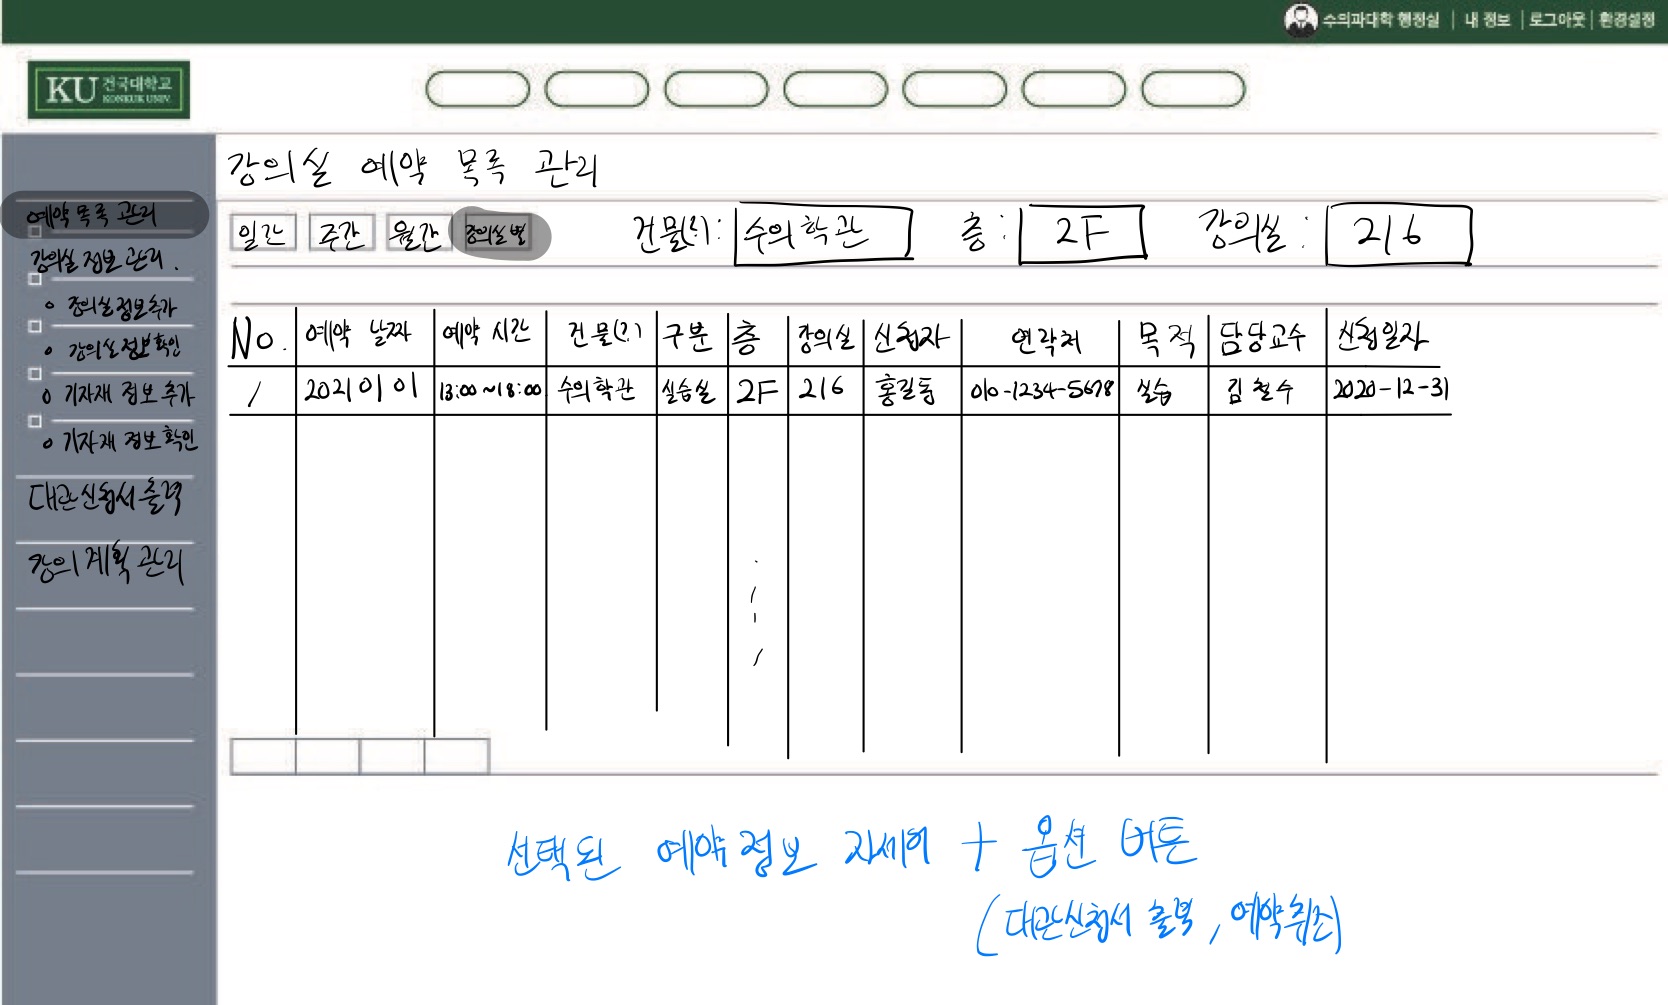 수의과대학 행정실 | 내 정보 | 로그아웃 | 환경설정
KU 건국대학교
KONKUK UNIV.
강의실 예약 목록 관리
예약 목록 관리
강의실 정보 관리.
강의실 정보 추가
강의실 정보 확인
기자재 정보 추가
기자재 정보 확인
대관신청서 출력
강의 계획 관리
일간 주간 월간 강의실별 건물(리): 수의학관 층: 2F 강의실: 216
No. 예약 날짜 예약 시간 건물(리) 구분 층 강의실 신청자 연락처 목적 담당교수 신청일자
1 20210101 13:00~18:00 수의학관 실습실 2F 216 홍길동 010-1234-5678 실습 김철수 2020-12-31
선택된 예약정보 자세히 + 옵션 버튼
(대관신청서 출력, 예약취소)